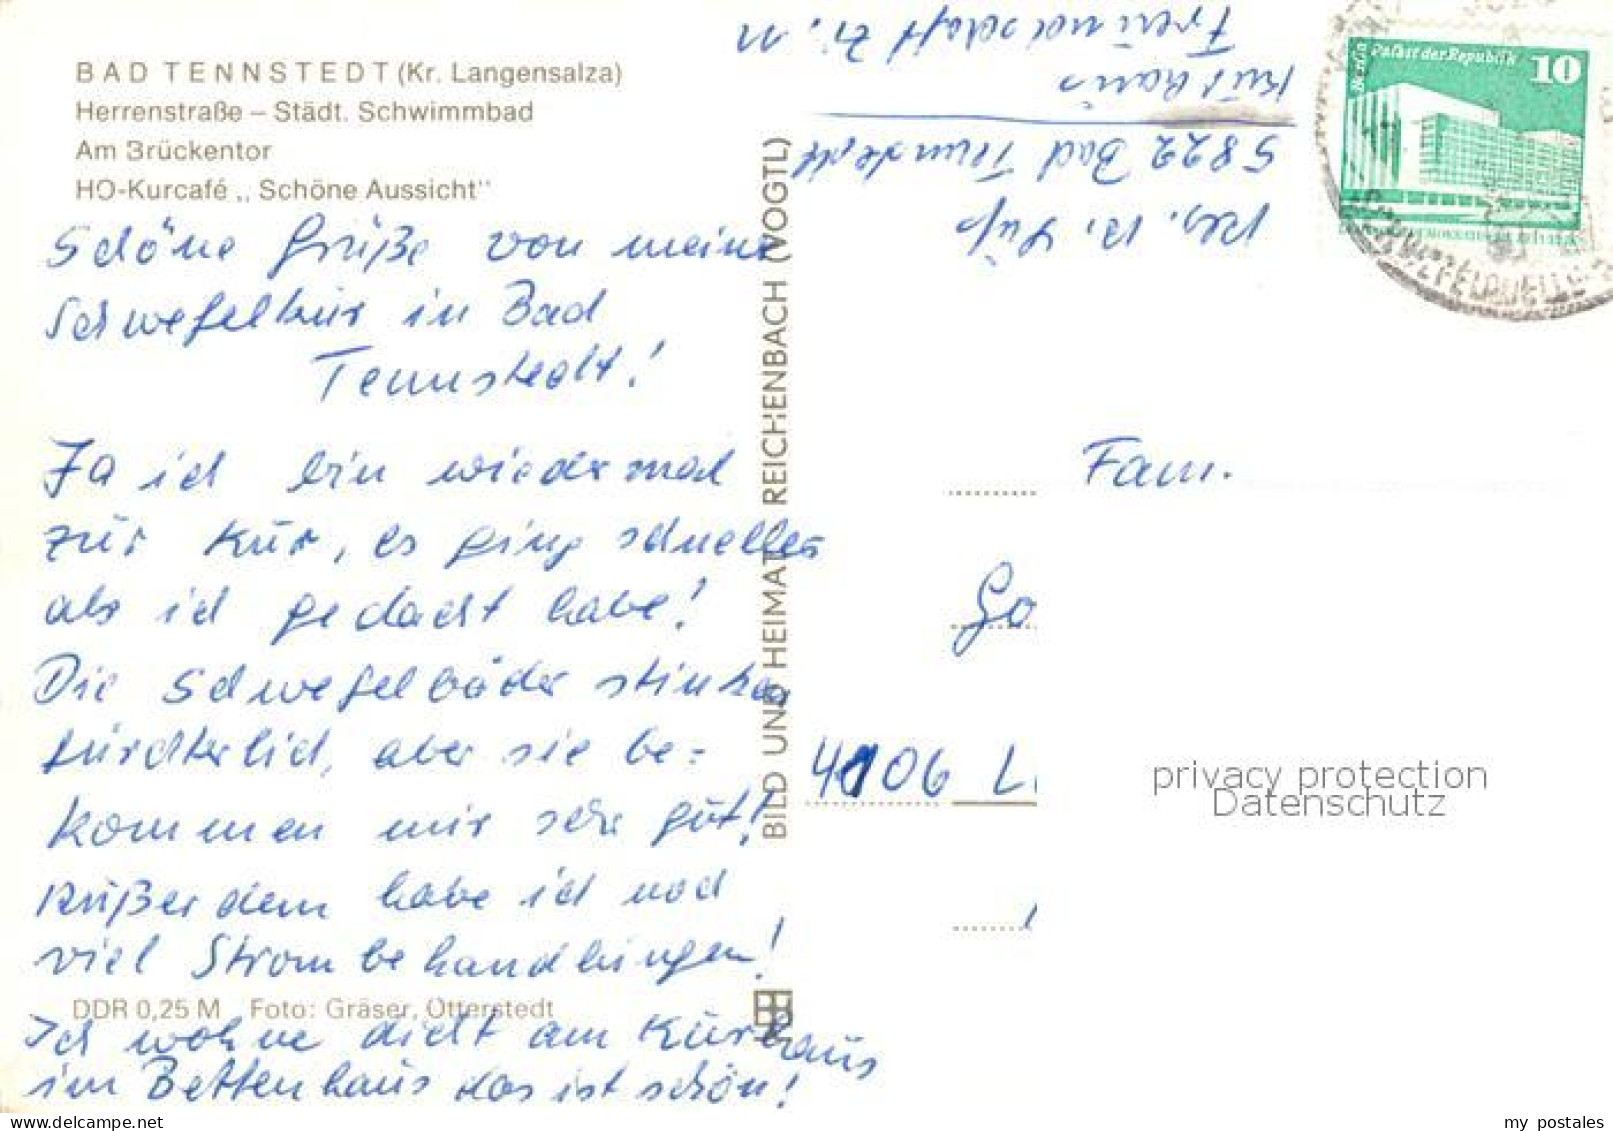 BAD TENNSTEDT (Kr. Langensalza)
Herrenstraße – Städt. Schwimmbad
Am Brückentor
HO-Kurcafé „Schöne Aussicht"
Schöne Grüße von meiner
Schwefelkur in Bad
Tennstedt!
Ja ich bin wiedermal
zur Kur, es ging schneller
als ich gedacht habe!
Die Schwefelbäder stinken
fürchterlich, aber sie be=
kommen mir sehr gut!
Außerdem habe ich noch
viel Strombehandlungen!
DDR 0,25 M Foto: Gräser, Otterstedt
Ich wohne dicht am Kurhaus
im Bettenhaus das ist schön!
BILD UND HEIMAT REICHENBACH (VOGTL)
5822 Bad Tennstedt
Kurhaus
Freundschaft Zi. 11
Berlin Palast der Republik 10
SCHWEFELQUELLE
Fam.
Go
4106 L
privacy protection
Datenschutz
delcampe.net
my_postales